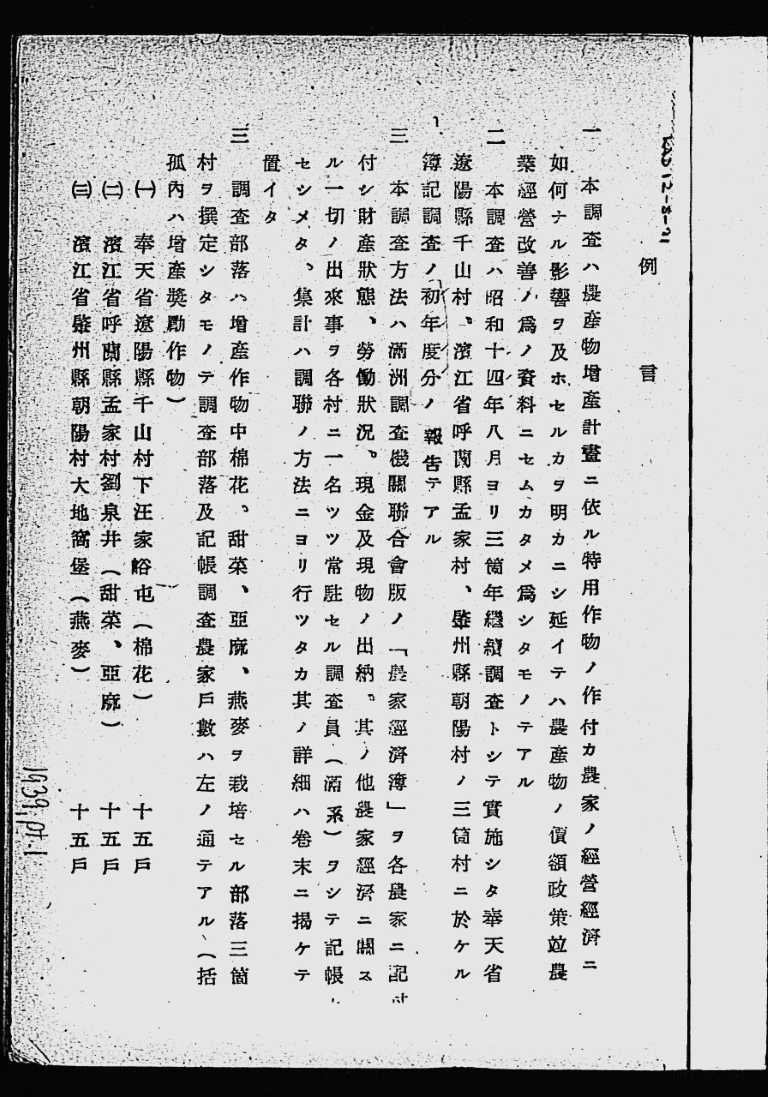 例言
一　本調査ハ農産物増産計畫ニ依ル特用作物ノ作付カ農家ノ經營經濟ニ
如何ナル影響ヲ及ホセルカヲ明カニシ延イテハ農産物ノ價額政策竝農
業經營改善ノ爲ノ資料ニセムカタメ爲シタモノテアル
二　本調査ハ昭和十四年八月ヨリ三箇年繼續調査トシテ實施シタ奉天省
遼陽縣千山村、濱江省呼蘭縣孟家村、肇州縣朝陽村ノ三箇村ニ於ケル
簿記調査ノ初年度分ノ報告テアル
三　本調査方法ハ滿洲調査機關聯合會版ノ「農家經濟簿」ヲ各農家ニ記
付シ財産狀態、勞働狀況。現金及現物ノ出納。其ノ他農家經濟ニ關ス
ル一切ノ出來事ヲ各村ニ一名ツツ常駐セル調査員（滿系）ヲシテ記帳
セシメタ、集計ハ調聯ノ方法ニヨリ行ツタカ其ノ詳細ハ卷末ニ揭ケテ
置イタ
三　調査部落ハ增産作物中棉花。甜菜、亞麻、燕麥ヲ栽培セル部落三箇
村ヲ撰定シタモノテ調査部落及記帳調査農家戶數ハ左ノ通テアル、（括
孤內ハ增産奬勵作物）
㈠　奉天省遼陽縣千山村下汪家峪屯（棉花）　十五戶
㈡　濱江省呼蘭縣孟家村劉泉井（甜菜、亞麻）　十五戶
㈢　濱江省肇州縣朝陽村大地窩堡（燕麥）　十五戶
1939, pt.1